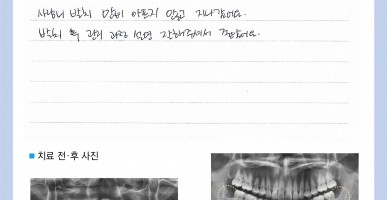 사랑니 발치 많이 아프지 않고 지나갔어요.
발치 후 관리 과정 설명 잘해주셔서 좋았어요.
■ 치료 전·후 사진